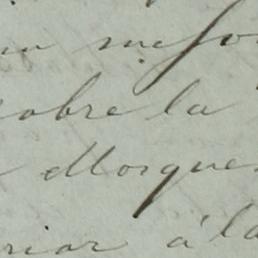 un mejo
sobre la
Morque
riar á la